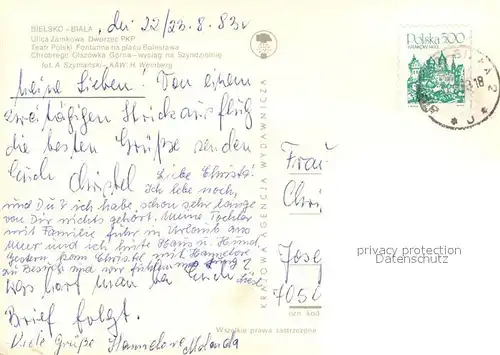 BIELSKO - BIAŁA, den 22/23.8.83
Ulica Zamkowa Dworzec PKP
Teatr Polski Fontanna na placu Bolesława
Chrobrego Olszówka Górna - wyciąg na Szyndzielnię
fot. A. Szymański - KAW: H. Weinberg
Meine Lieben! Von einem
zweitägigen ausflug
die besten Grüße senden
Euch Christel
Liebe Christl!
Ich lebe noch,
und Du? ich habe schon sehr lange
von Dir nichts gehört. Meine Tochter
mit Familie fuhr in Urlaub ans
Meer und ich hüte Haus u. Hund.
Gestern kam Christel mit Hannelore
zu Besuch und wir
Was hört man bei Euch?
Brief folgt.
Viele Grüße Hannelore
KRAJOWA AGENCJA WYDAWNICZA
Wszelkie prawa zastrzeżone
Polska 500
KRAKÓW 1493
18
2
Frau
Chri
Jose
705
(kod
privacy protection
Datenschutz